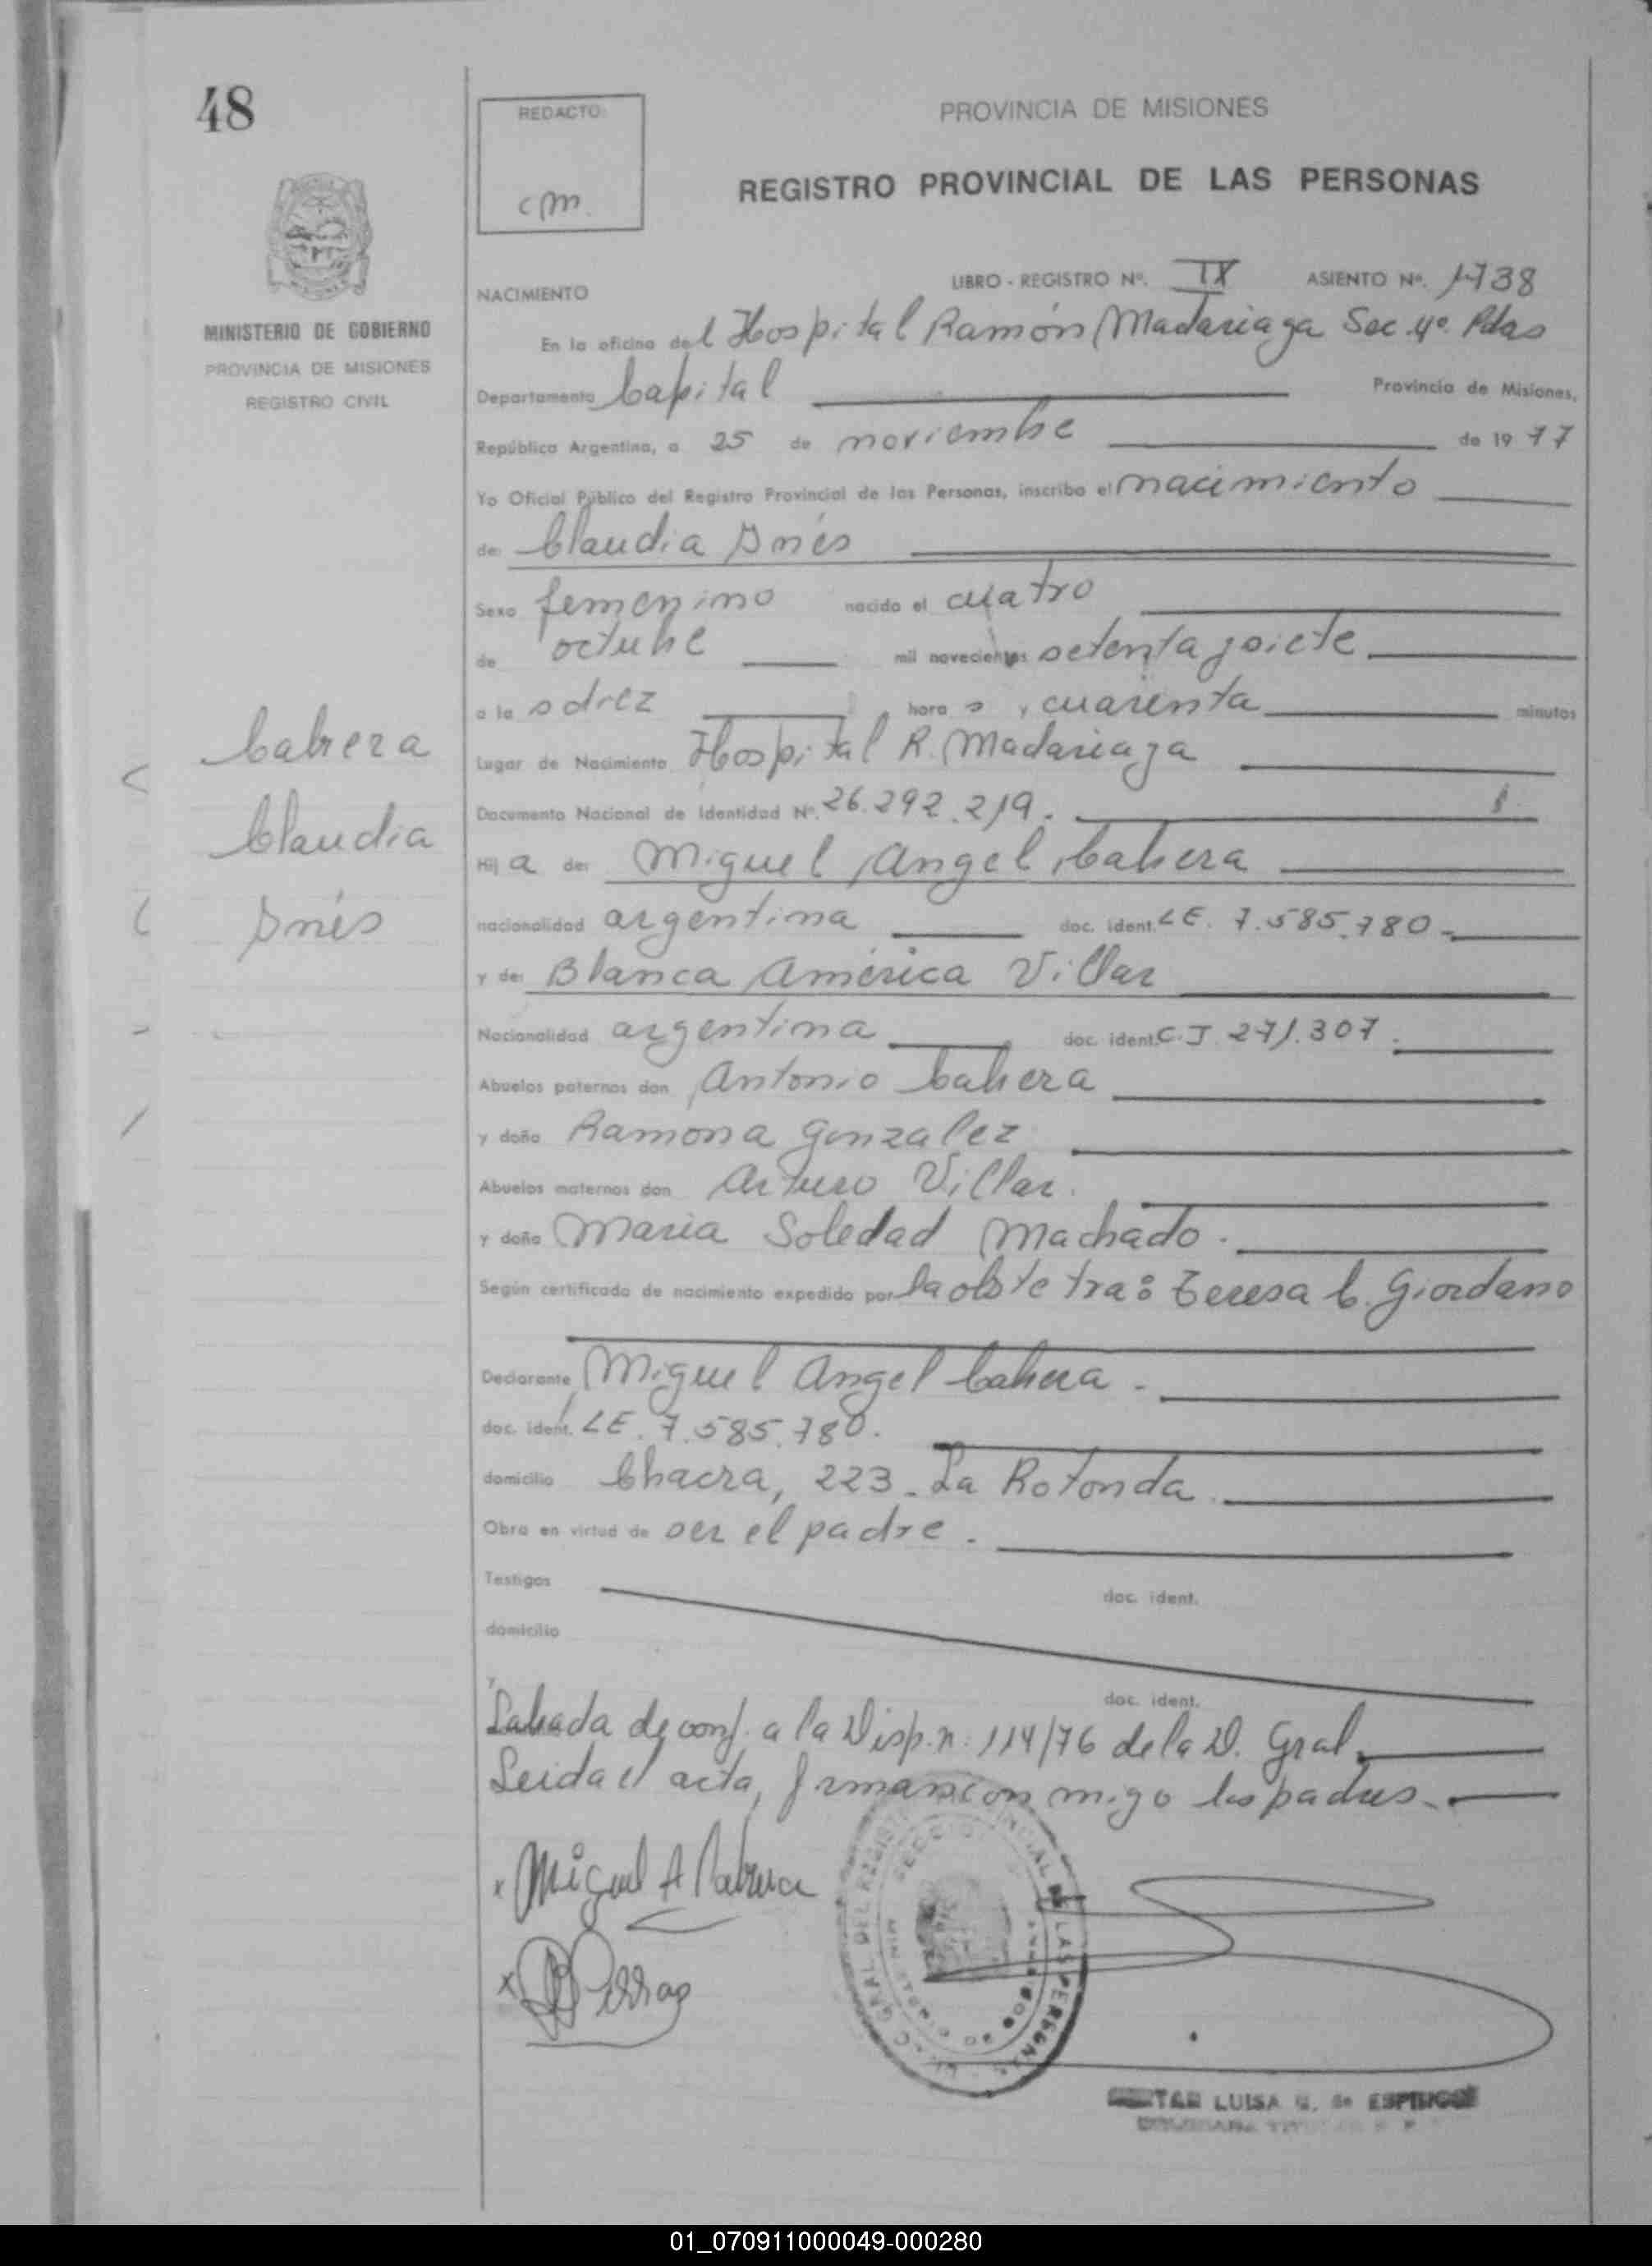 48
REDACTO:
cm.
PROVINCIA DE MISIONES
REGISTRO PROVINCIAL DE LAS PERSONAS
MINISTERIO DE GOBIERNO
PROVINCIA DE MISIONES
REGISTRO CIVIL
NACIMIENTO
LIBRO - REGISTRO Nº. IX ASIENTO Nº. 1738
En la oficina del Hospital Ramón Madariaga Sec. 4º. Pdas
Departamento Capital Provincia de Misiones,
República Argentina, a 25 de noviembre de 1977
Yo Oficial Público del Registro Provincial de las Personas, inscribo el nacimiento
de: Claudia Inés
Sexo femenino nacido el cuatro
de octubre mil novecientos setenta y siete
a las diez horas y cuarenta minutos
Lugar de Nacimiento Hospital R. Madariaga
Documento Nacional de Identidad Nº. 26.292.219.
Hija de: Miguel Angel Cabrera
nacionalidad argentina doc. ident. LE. 7.585.780-
y de: Blanca América Villar
Nacionalidad argentina doc. ident. C.I 271.307.
Abuelos paternos don Antonio Cabrera
y doña Ramona Gonzalez
Abuelos maternos don Arturo Villar.
y doña Maria Soledad Machado.
Según certificado de nacimiento expedido por la obstetra: Teresa C. Giordano
Declarante Miguel Angel Cabrera.
doc. ident. LE. 7.585.780.
domicilio Chacra, 223. La Rotonda.
Obra en virtud de ser el padre.
Testigos doc. ident.
domicilio
y doc. ident.
Labrada de conf. a la Disp. n. 114/76 de la D. Gral.
Leida el acta, firman con migo los padres.
Cabrera
Claudia
Inés
x Miguel A Cabrera
x
LUISA G. de
01_070911000049-000280